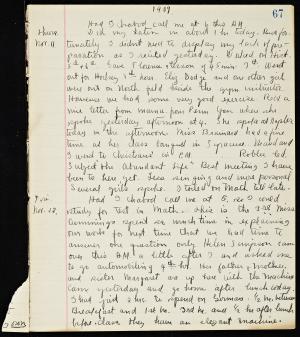 1909
67
Thurs.
Nov. 11
Had I chabod call me at 6 this A.M.
Did my Latin in about 1 hr. today. Unfor-
tunately I didn't need to display my lack of pre-
paration as I recited yesterday. Worked on Hist.
out for Hockey 4th hour. Eliz Dodge and one other girl
were out on North field beside the gym instructor
However we had some very good exercise. Had a
nice letter from mamma from when she
spoke yesterday afternoon at 4. She spoke at
today in the afternoon. Miss Brainard had a fine
time at her class banquet in Syracuse. Head and
I went to Christians in P.M.
I urged the Abundant Life. Best meeting I have
been to here yet. Less singing and more personal
Several girls spoke. I toiled on Math till late.
Fri.
Nov. 12.
Had I chabod call me at 5, so I could
study for test in Math. Alice in the
Cummings spent so much time in explaining
our work for next time that we had time to
answer one question only. Helen Simpson came
over this P.M. a little after 3 and asked me
to go automobiling 4th hr. Her father, mother,
and sister Margaret as up here with the machine
Cam yesterday and go home after lunch today.
I had just 2 hrs. to spend on German. 1/2 hr. before
Breakfast and 1st hr. 3rd hr. and 1/2 hr. after lunch
before class. They have an elegant machine.